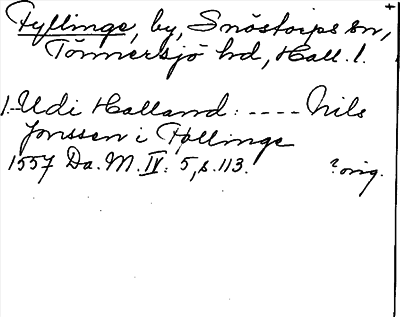 Fyllinge, by, Snöstorps sn,
Tönnersjö hd, Hall. l.
1. Udi Halland: ---- Nils
Jonssen iFøllinge
1557 Da. M. IV: 5, s. 113. ? orig.